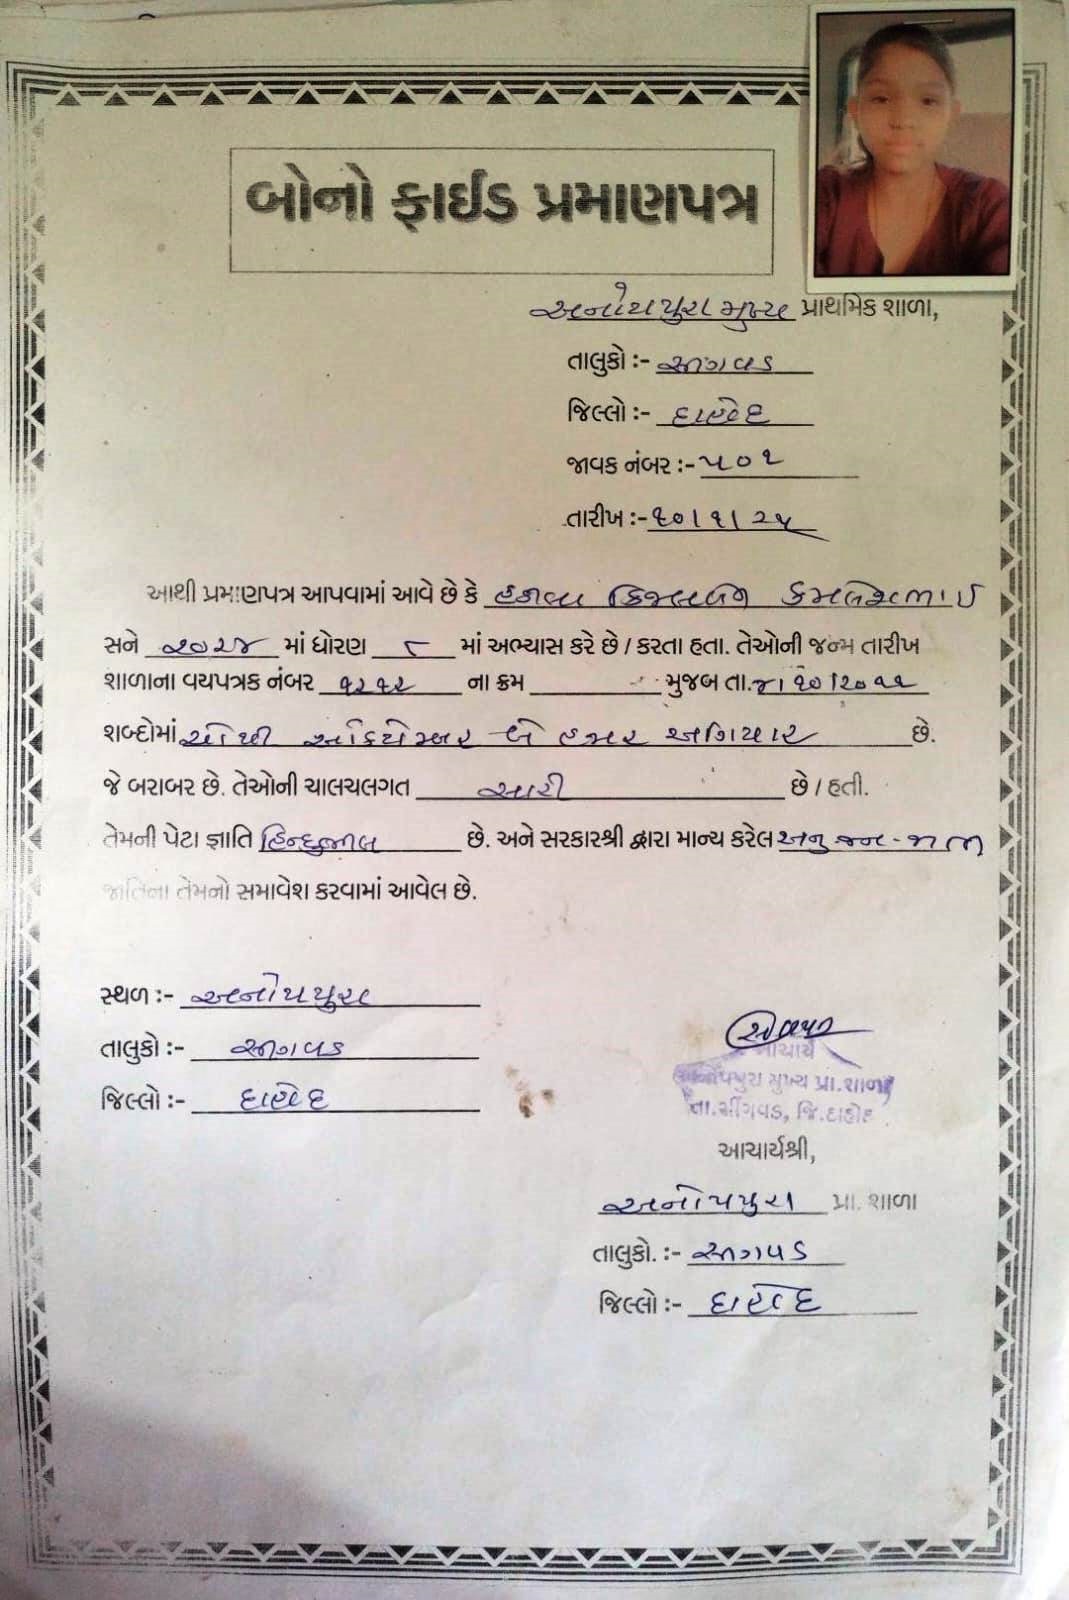 બોનો ફાઈડ પ્રમાણપત્ર
અનોપપુરા મુખ્ય પ્રાથમિક શાળા,
તાલુકો :- સીંગવડ
જિલ્લો :- દાહોદ
જાવક નંબર :- ૫૦૧
તારીખ :- ૧૦/૧/૨૫
આથી પ્રમાણપત્ર આપવામાં આવે છે કે કિંજલબેન કમલેશભાઈ
સને ૨૦૨૪ માં ધોરણ ૮ માં અભ્યાસ કરે છે / કરતા હતા. તેઓની જન્મ તારીખ
શાળાના વયપત્રક નંબર ૧૨૧૨ ના ક્રમ મુજબ તા. ૪/૧૦/૨૦૧૧
શબ્દોમાં ચોથી ઓક્ટોમ્બર બે હજાર અગિયાર છે.
જે બરાબર છે. તેઓની ચાલચલગત સારી છે / હતી.
તેમની પેટા જ્ઞાતિ હિન્દુભીલ છે. અને સરકારશ્રી દ્વારા માન્ય કરેલ અનુ જન-જાતિ
જાતિના તેમનો સમાવેશ કરવામાં આવેલ છે.
સ્થળ :- અનોપપુરા
તાલુકો :- સીંગવડ
જિલ્લો :- દાહોદ
આચાર્ય
અનોપપુરા મુખ્ય પ્રા.શાળા
તા.સીંગવડ, જિ.દાહોદ
આચાર્યશ્રી,
અનોપપુરા પ્રા. શાળા
તાલુકો. :- સીંગવડ
જિલ્લો :- દાહોદ